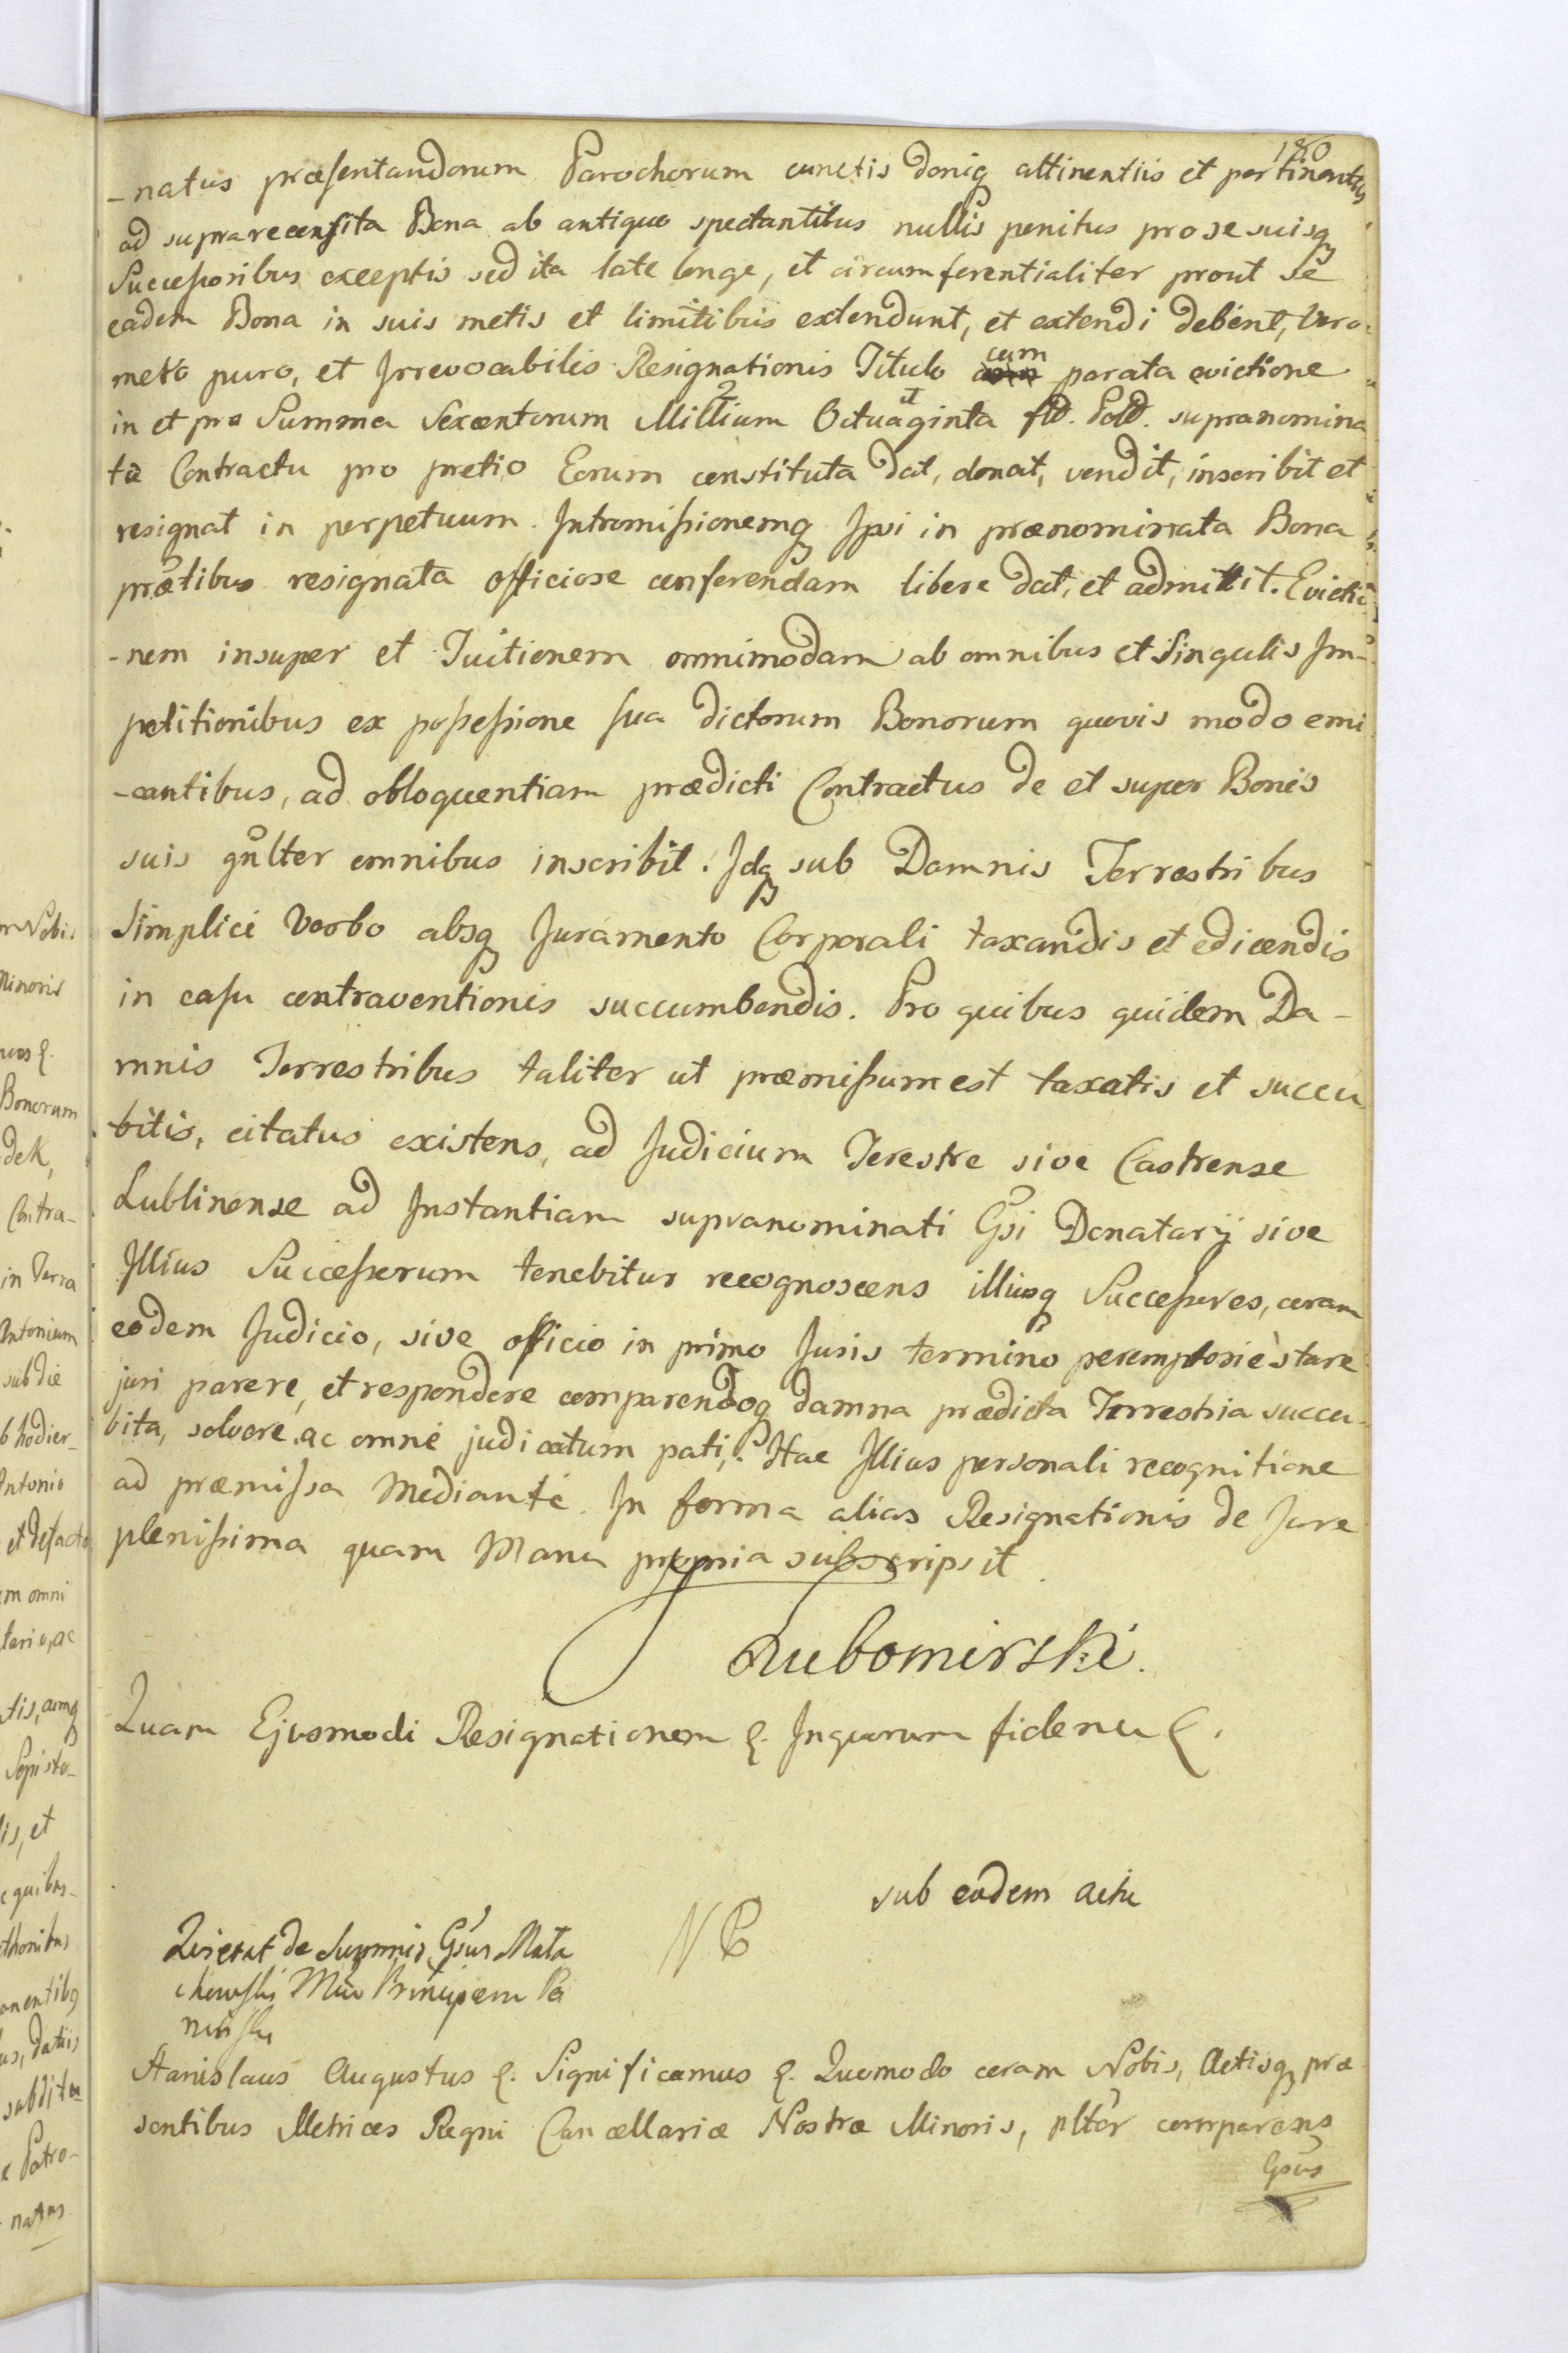 180
-natus præsentandorum Parochorum cunctis deniq attinentiis et pertinentys
ad suprarecensita Bona ab antiquo spectantibus nullis penitus pro se suisq
Successoribus exceptis sed ita late longe, et circumferentialiter prout se
eadem Bona in suis metis et limitibus extendunt, et extendi debent, vero
meto puro, et Irrevocabilis Resignationis Titulo cum parata evictione
in et pro Summa Sexcentorum Millium Octuaginta fld. Pold. supranomina
to Contractu pro pretio Eorum constituta dat, donat, vendit, inscribit et
resignat in perpetuum. Intromissionemq Ipsi in prænominata Bona
prætibus resignata officiose conferendam libere dat, et admittit. Evictio
-nem insuper et Tuitionem omnimodam ab omnibus et singulis Im-
petitionibus ex possessione sua dictorum Bonorum quovis modo emi
-cantibus, ad obloquentiam prædicti Contractus de et super Bonis
suis gnlter omnibus inscribit. Idq sub Damnis Terrestribus
Simplici Verbo absq Juramento Corporali taxandis et edicendis
in casu contraventionis succumbendis. Pro quibus quidem Da-
mnis Terrestribus taliter ut præmissum est taxatis et succu
bitis, citatus existens, ad Judicium Terestre sive Castrense
Lublinense ad Instantiam supranominati Gsi Donatarÿ sive
Illius Successorum tenebitur recognoscens illiusq Successores, coram
eodem Judicio, sive officio in primo Juris termino peremptorie stare
juri parere, et respondere comparendoq damna prædicta Terrestria succu-
bita, solvere ac omne judicatum pati. Hac Illius personali recognitione
ad præmissa Mediante. In forma alias Resignationis de Jure
plenissima quam Manu propria subscripsit.
Lubomirski.
Quam Ejusmodi Resignationem &. Inquorum fidem &.
sub eodem actu
Quietat de Summis Gsus Mała
chowski Mus Principem Po
ninski
NP
Stanislaus Augustus &. Significamus &. Quomodo coram Nobis, Actisq præ
sentibus Metrices Regni Cancellariæ Nostræ Minoris, plter comparens
Gsus